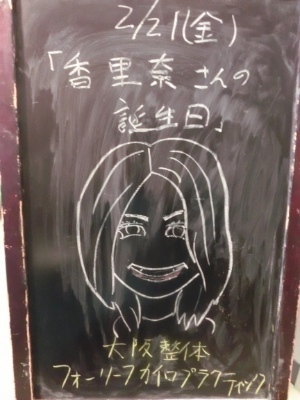 2/21(金)
「香里奈さんの
誕生日」
大阪整体
フォーリーフカイロプラクティック